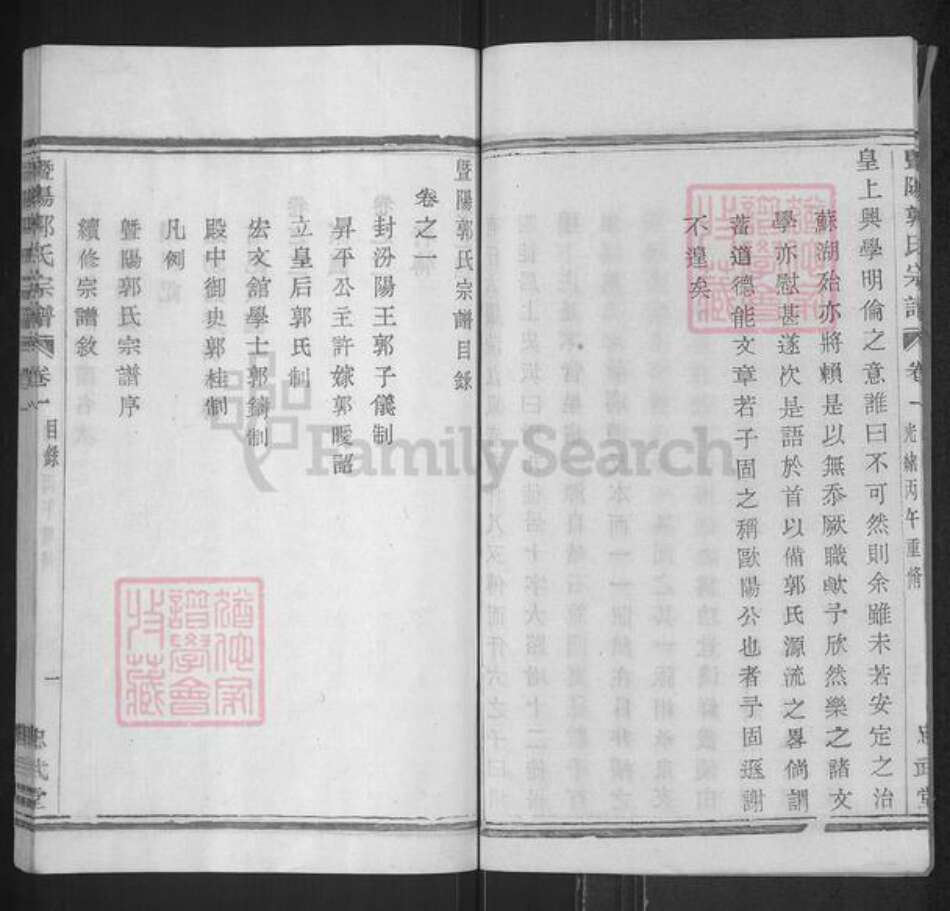 暨陽郭氏宗譜 卷一 光緒丙午重脩 忠武堂
皇上興學明倫之意誰曰不可然則余雖未若安定之治
蘇湖殆亦將賴是以無忝厥職歟予欣然樂之諸文
學亦慰甚遂次是語於首以備郭氏源流之畧倘謂
蓄道德能文章若子固之稱歐陽公也者予固遜謝
不遑矣
暨陽郭氏宗譜目錄
卷之一
封汾陽王郭子儀制
昇平公主許嫁郭曖詔
立皇后郭氏制
宏文館學士郭鑄制
殿中御史郭桂制
凡例
暨陽郭氏宗譜序
續修宗譜敘
暨陽郭氏宗譜 卷一 目錄 一 忠武堂
FamilySearch
猶他家譜學會收藏
猶他家譜學會收藏